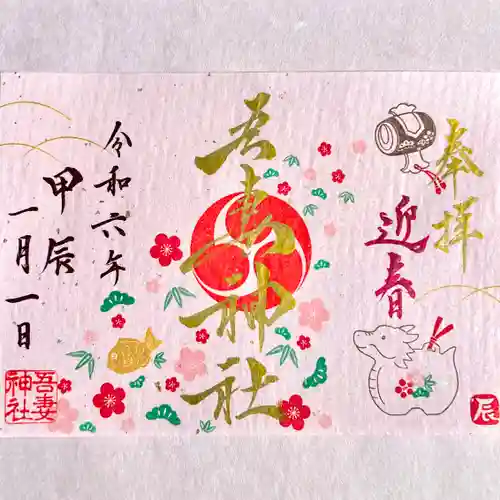 奉拝
迎春
辰
吾妻神社
令和六年
甲辰
一月一日
吾妻
神社